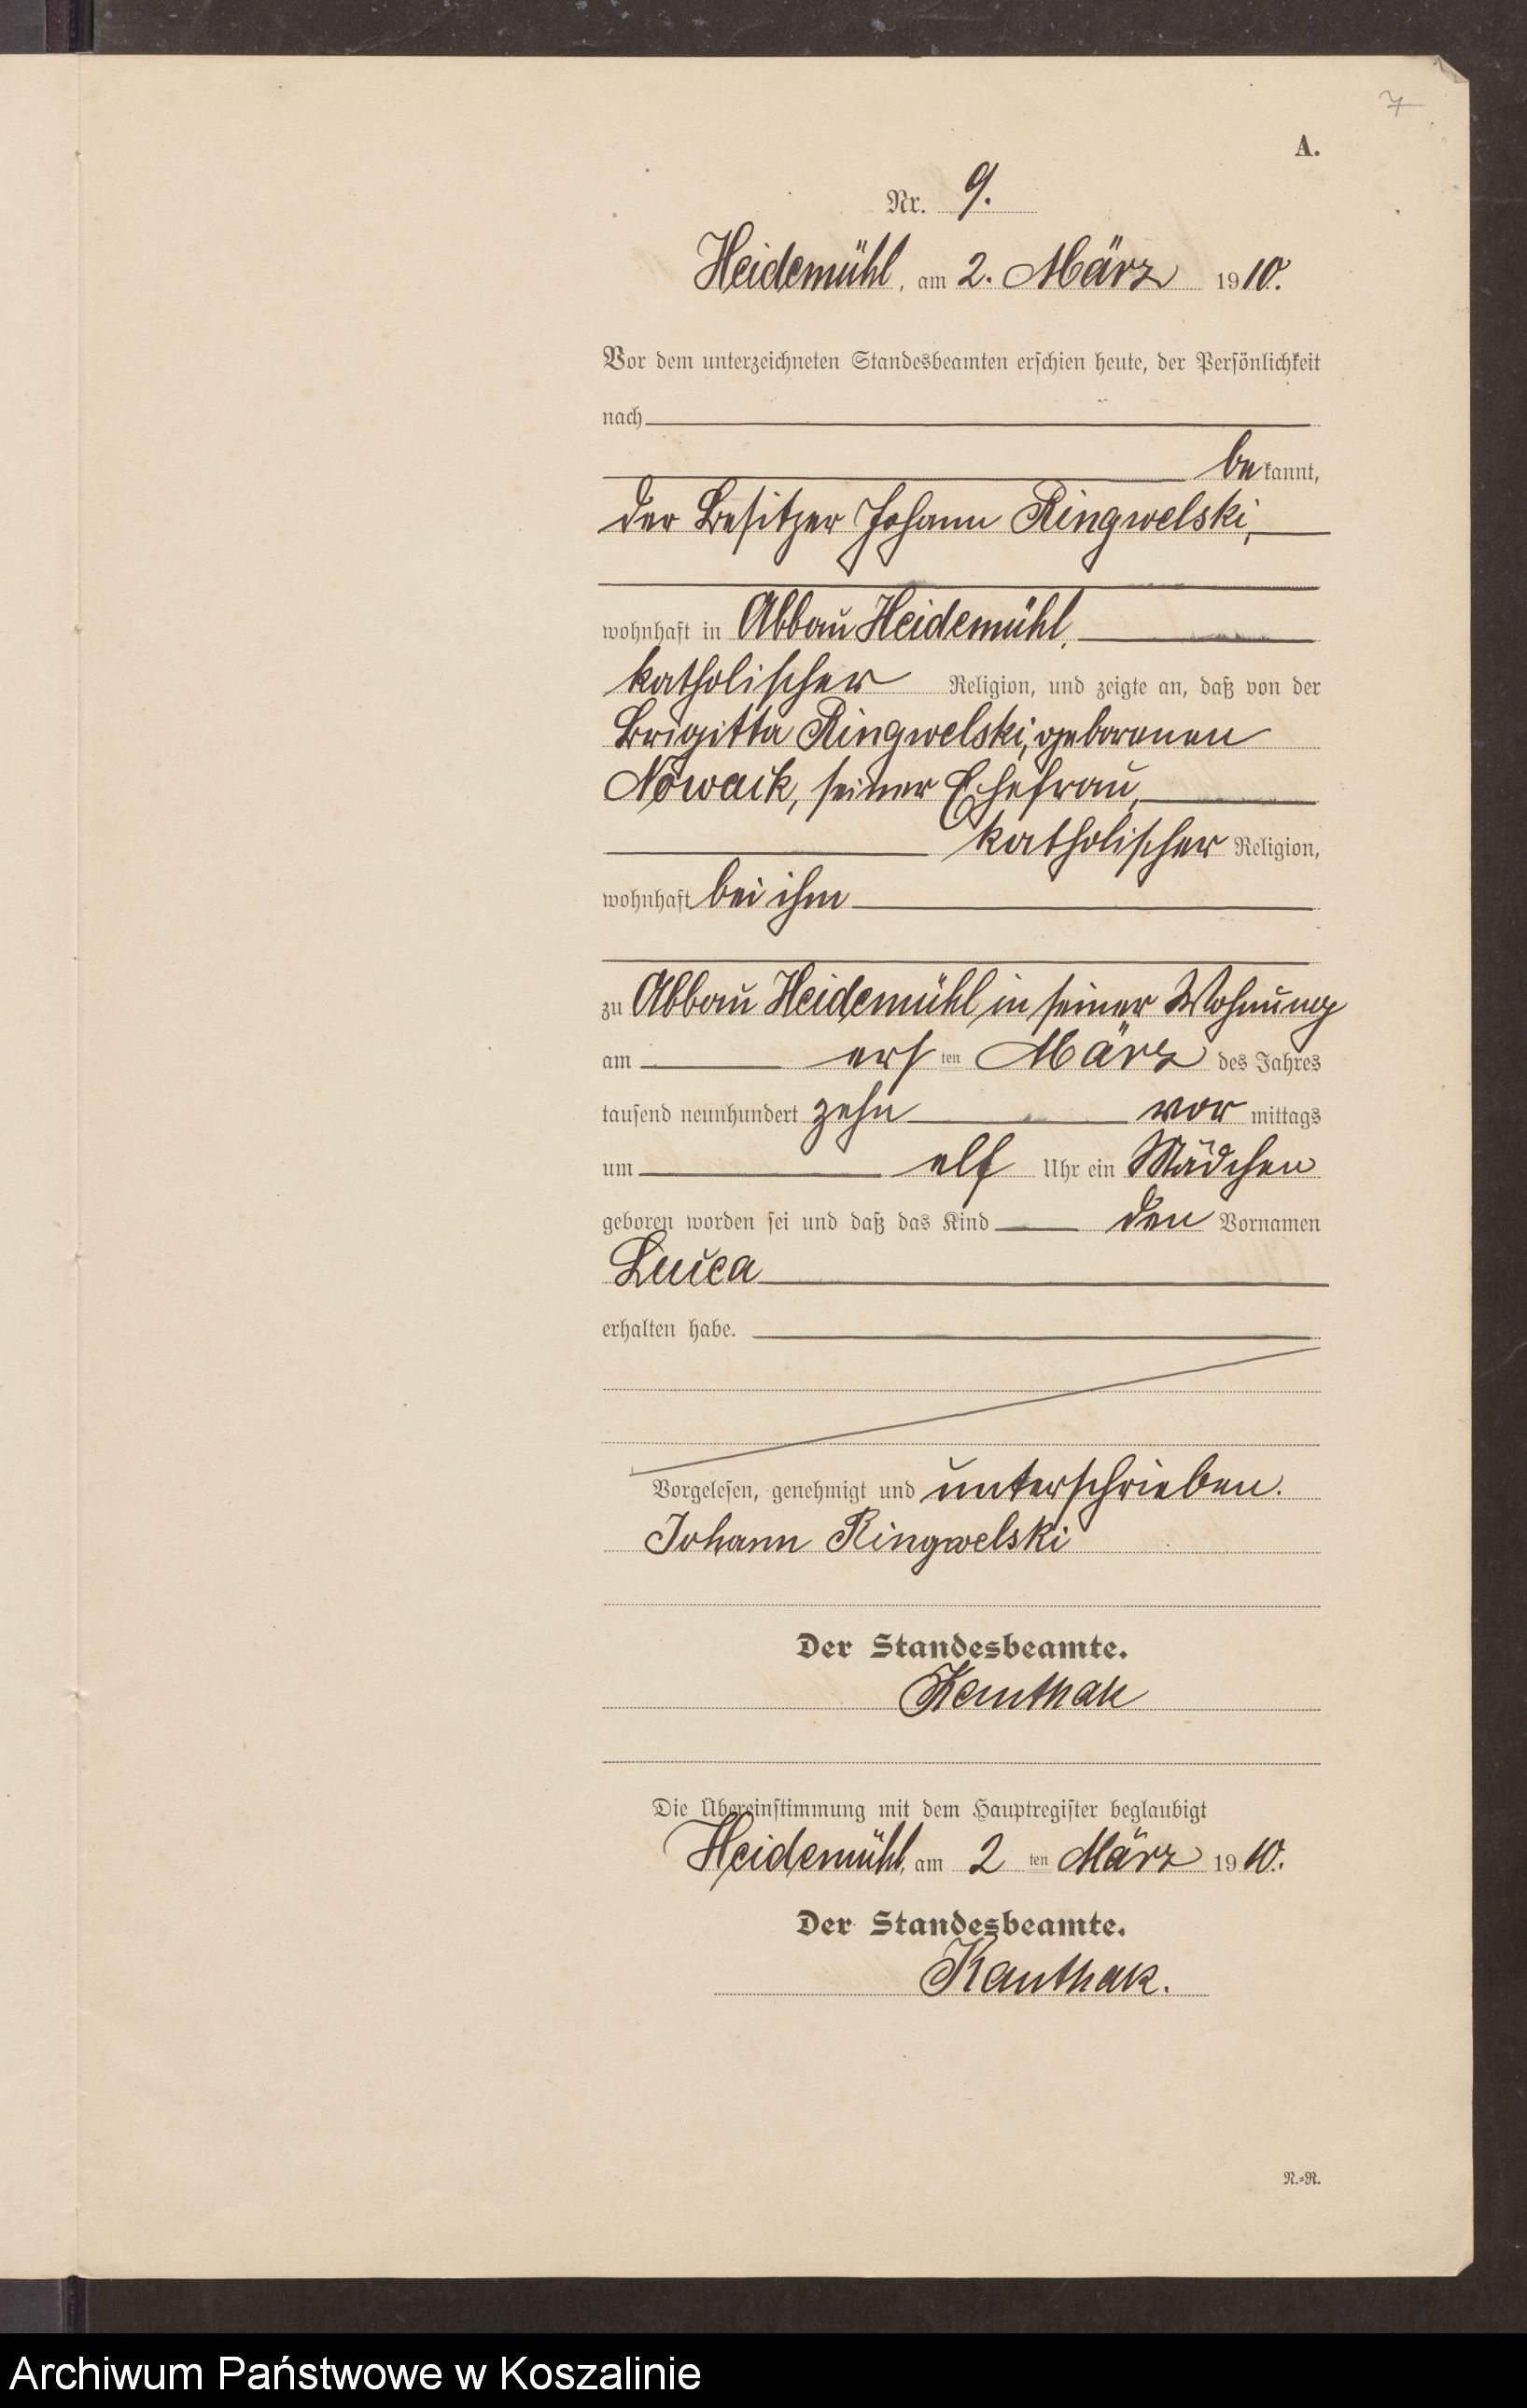 7
A.
Nr. 9.
Heidemühl, am 2. März 1910.
Vor dem unterzeichneten Standesbeamten erschien heute, der Persönlichkeit
nach
bekannt,
der Besitzer Johann Ringwelski,
wohnhaft in Abbau Heidemühl,
katholischer Religion, und zeigte an, daß von der
Brigitta Ringwelski, geborenen
Nowack, seiner Ehefrau,
katholischer Religion,
wohnhaft bei ihm
zu Abbau Heidemühl in seiner Wohnung
am ersten März des Jahres
tausend neunhundert zehn vormittags
um elf Uhr ein Mädchen
geboren worden sei und daß das Kind den Vornamen
erhalten habe.
Vorgelesen, genehmigt und unterschrieben.
Johann Ringwelski
Der Standesbeamte.
Kanthak
Die Übereinstimmung mit dem Hauptregister beglaubigt
Heidemühl, am 2ten März 1910.
Der Standesbeamte.
Kanthak.
N.=R.
Archiwum Państwowe w Koszalinie